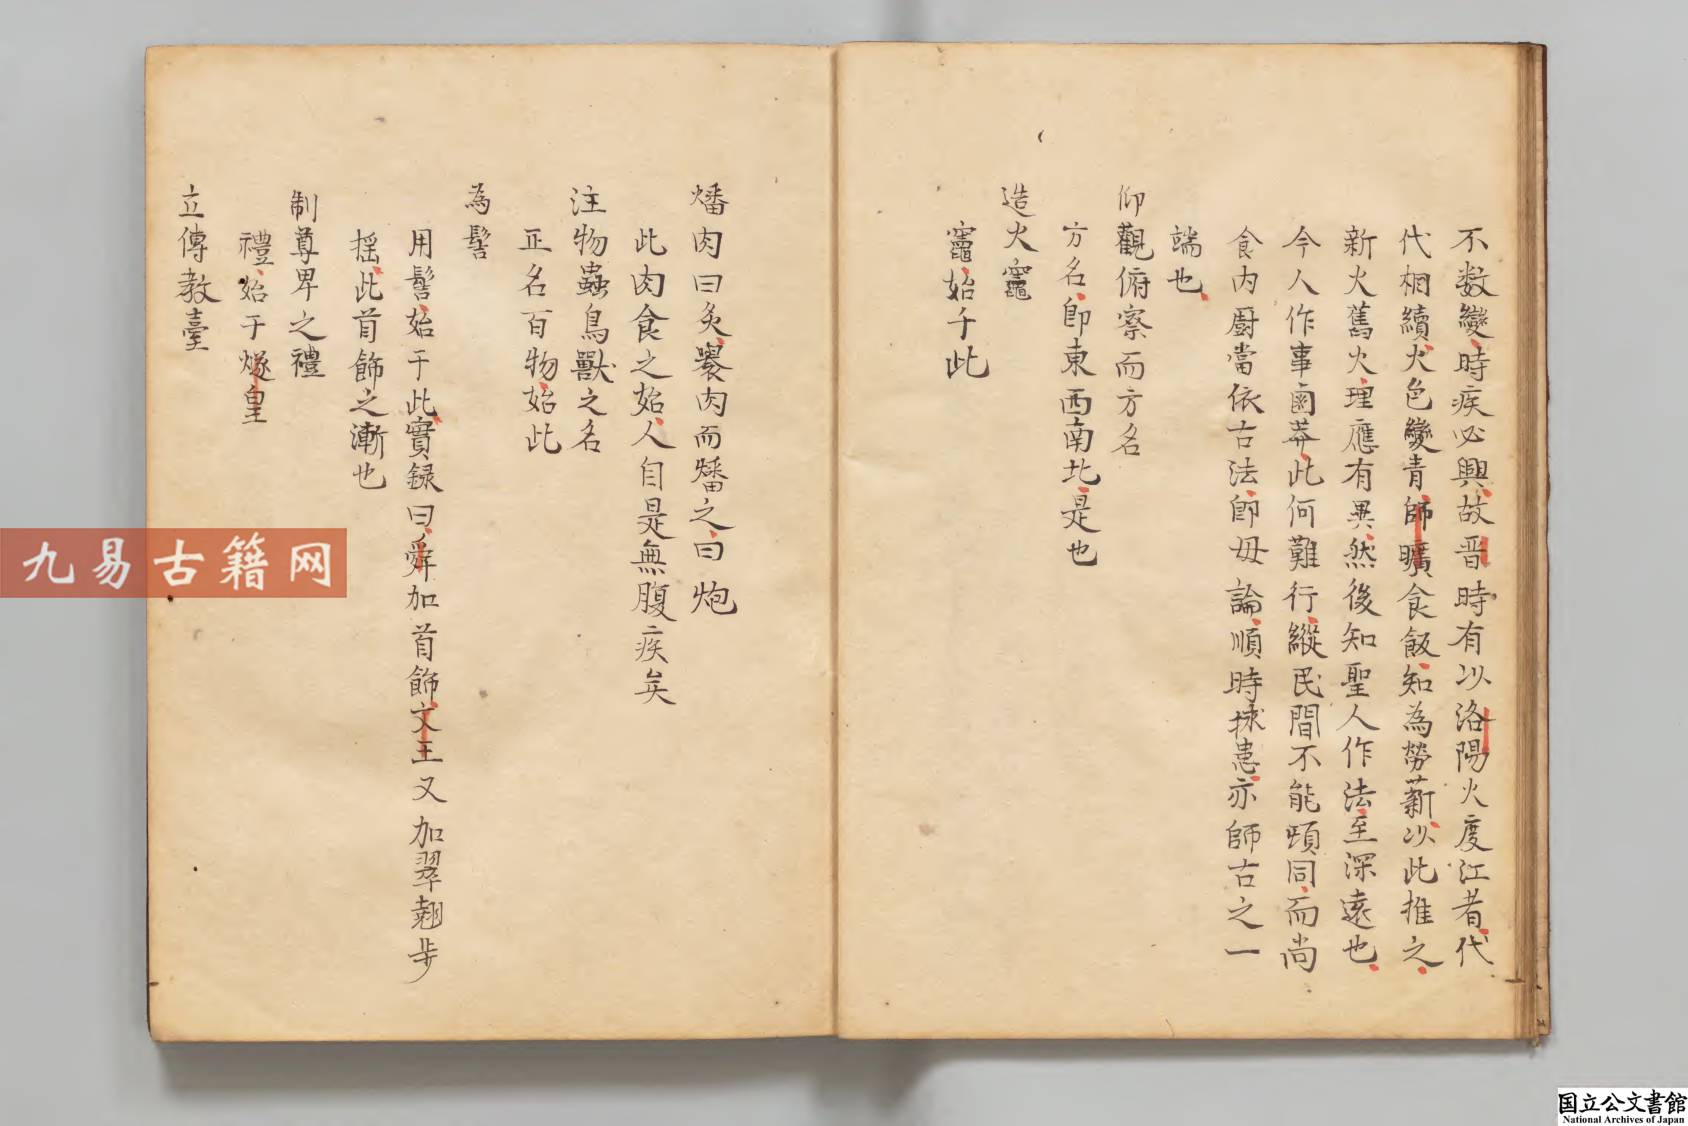 不数變時疾必興故晋時有以洛陽火度江者代
代相續火色變青師曠食飯知為勞薪以此推之
新火舊火理應有異然後知聖人作法至深遠也
今人作事鹵莽此何難行縱民間不能頓同而尚
食内厨當依古法即毋論順時捄患亦師古之一
端也
仰觀俯察而方名
方名即東西南北是也
造火竈
竈始于此
燔肉曰炙裹肉而燔之曰炮
此肉食之始人自是無腹疾矣
注物蟲鳥獸之名
正名百物始此
為髻
用髻始于此實録曰舜加首飾文王又加翠翹步
摇此首飾之漸也
制尊卑之禮
禮始于燧皇
立傳教臺
九易古籍网
国立公文書館
National Archives of Japan